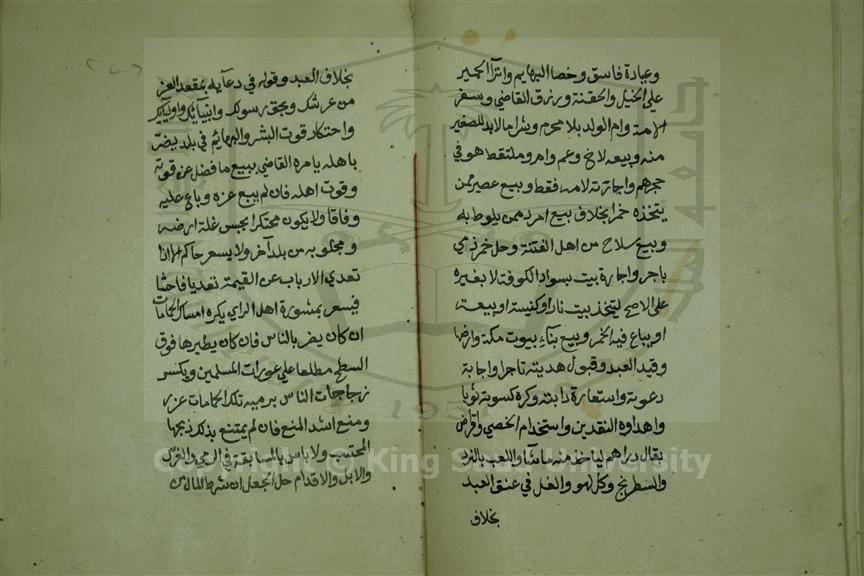 وعيادة فاسق وخصا البهايم وانزآ الحمير
على الخيل والحقنة ورزق القاضي وسفر
الامة وام الولد بلا محرم وشرا مالابد للصغير
منه وبيعه لاخ وعم وام وملتقط هو في
حجرهم واجارته لامه فقط وبيع عصير ممن
يتخذه خمرا بخلاف بيع امرد ممن يلوط به
وبيع سلاح من اهل الفتنة وحل خمر ذمي
باجر واجارة بيت بسواد الكوفة لا بغيره
على الاصح ليتخذ بيت نار او كنيسة او بيعة
او يباع فيه الخمر وبيع بناء بيوت مكة وارضها
وقيد العبد وقبول هديته تاجرا واجابة
دعوته واستعارة دابته وكره كسوته ثوبا
واهداوه النقدين واستخدام الخصي واقراض
بقال دراهم لياخذ منه ماشآ واللعب بالنرد
والشطرنج وكل لهو والغل في عنق العبد
بخلاف
بخلاف العبد وقوله في دعآيه بمقعد العز
من عرشك وبحق رسولك وانبيآئك واوليآئك
واحتكار قوت البشر والبهائم في بلد يضر
باهله يامره القاضي ببيع ما فضل عن قوته
وقوت اهله فان لم يبع عزره وباع عليه
وفاقا ولا يكون محتكرا بحبس غلة ارضه
ومجلوبه من بلد آخر ولا يسعر حاكم الا اذا
تعدي الارباب عن القيمة تعديا فاحشا
فيسعر بمشورة اهل الراي يكره امساك الحمامات
ان كان يضر بالناس فان كان يطيرها فوق
السطح مطلعا علي عورات المسلمين ويكسر
زجاجات الناس برميه تلك الحمامات عزر
ومنع اشد المنع فان لم يمتنع بذلك ذبحها
المحتسب ولا باس بالمسابقة في الرمي والفرس
والابل والاقدام حل الجعل ان شرط المال من
Copyright © King Saud University
1957